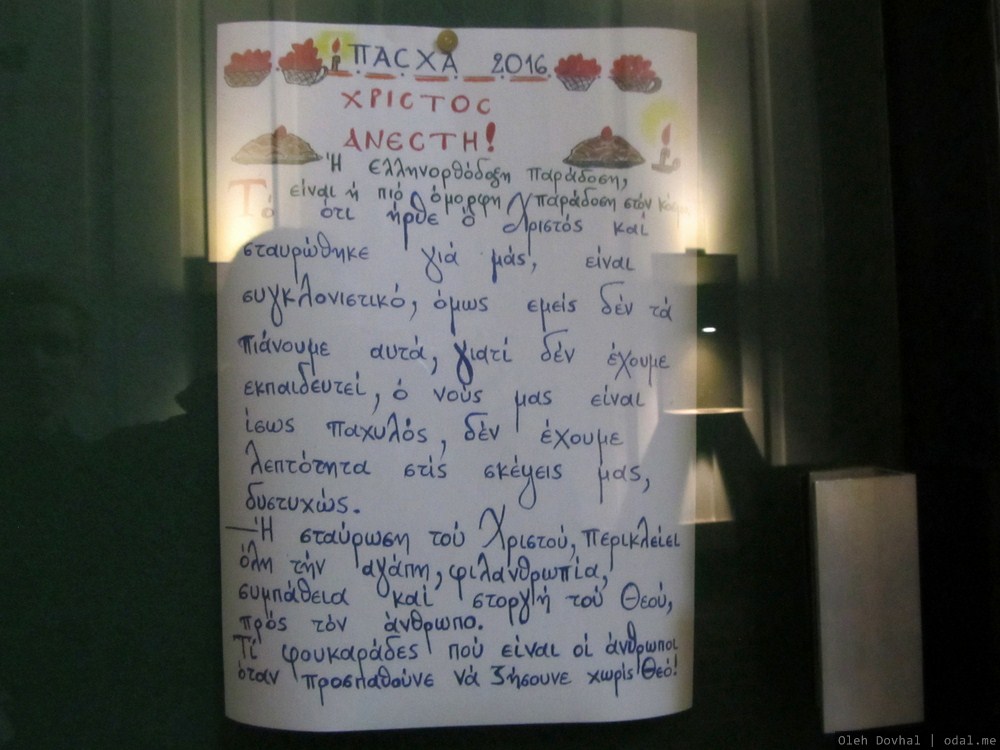 ΠΑΣΧΑ 2016
ΧΡΙΣΤΟΣ
ΑΝΕΣΤΗ!
Ἡ ελληνορθόδοξη παράδοση,
είναι ἡ πιό ὁμορφη παράδοση στόν
Τό ότι ἠρθε ὁ Χριστός καί
σταυρώθηκε γιά μάς, είναι
συγκλονιστικό, όμως εμείς δέν τά
πιάνουμε αυτά, γιατί δέν έχουμε
εκπαιδευτεί, ὁ νούς μας είναι
ίσως παχυλός, δέν έχουμε
λεπτότητα στίς σκέψεις μας,
δυστυχώς.
—Ἡ σταύρωση τού Χριστού, περικλείει
όλη τήν αγάπη, φιλανθρωπία,
συμπάθεια καί στοργή τού Θεού,
πρός τόν άνθρωπο.
Τί φουκαράδες πού είναι οἱ άνθρωποι
όταν προσπαθούνε νά ζήσουνε χωρίς Θεό!
Oleh Dovhal | odal.me